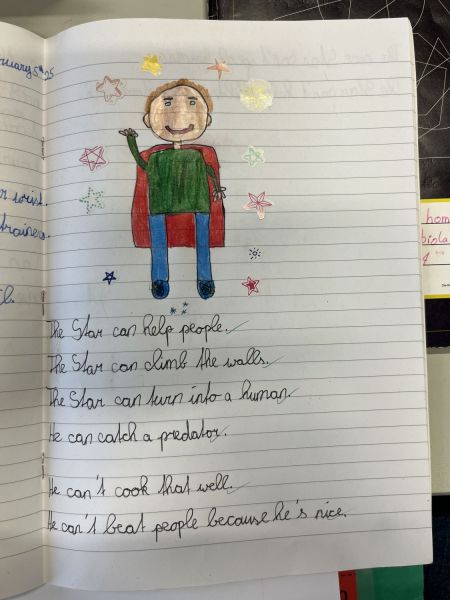 bruary 5th 25
wrist.
trainers
The Star can help people.
The Star can climb the walls.
The Star can turn into a human.
He can catch a predator.
He can't cook that well.
He can't beat people because he's nice.
hom
biola